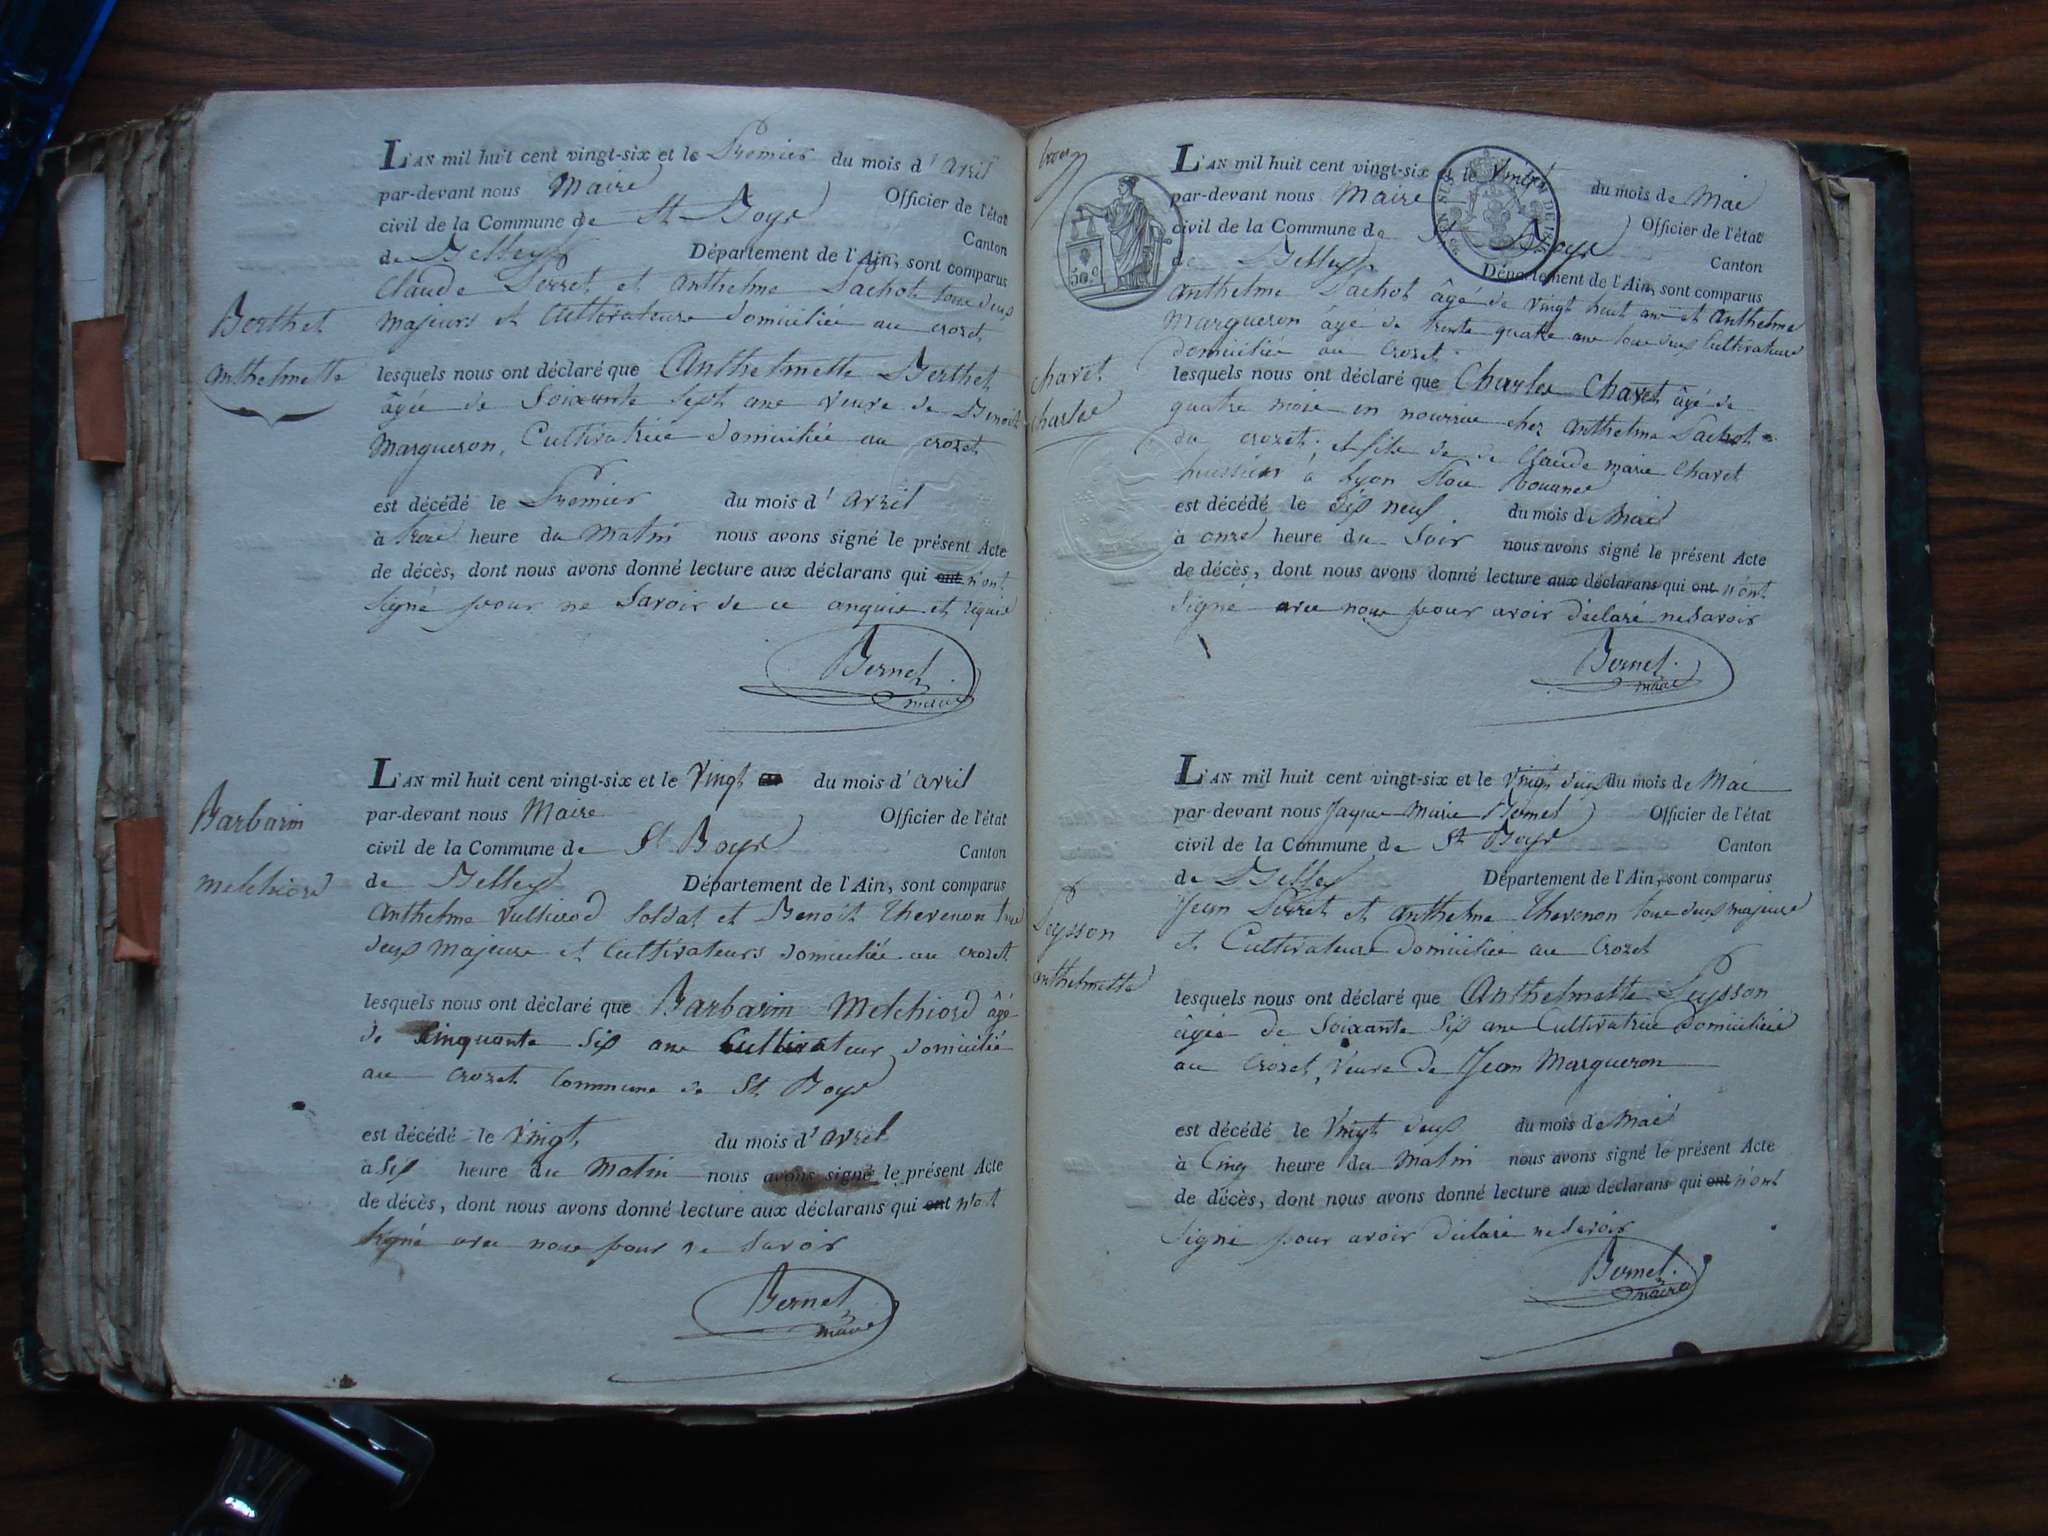 L'AN mil huit cent vingt-six et le Premier du mois d'avril
par-devant nous Maire Officier de l'état
civil de la Commune de St Boys Canton
de Belley Département de l'Ain, sont comparus
Claude Perret et Anthelme Pachot tous deux
majeurs et Cultivateurs domiciliés au crozet
Berthet
Anthelmette
lesquels nous ont déclaré que Anthelmette Berthet
âgée de Soixante Sept ans veuve de Benoit
Margueron, Cultivatrice domiciliée au crozet
est décédé le Premier du mois d'avril
à heure du Matin nous avons signé le présent Acte
de décès, dont nous avons donné lecture aux déclarans qui ont n'ont
signé pour ne Savoir de ce enquis et requis
Bernel
maire
L'AN mil huit cent vingt-six et le Vingt du mois d'avril
Barbarin
melchiord
par-devant nous Maire Officier de l'état
civil de la Commune de St Boys Canton
de Belley Département de l'Ain, sont comparus
Anthelme Vullierod Soldat et Benoit Thevenon tous
deux majeurs et Cultivateurs domiciliés au crozet
lesquels nous ont déclaré que Barbarin Melchiord âgé
de Cinquante Six ans Cultivateur domicilié
au crozet Commune de St Boys
est décédé le Vingt du mois d'avril
à Six heure du Matin nous avons signé le présent Acte
de décès, dont nous avons donné lecture aux déclarans qui ont n'ont
Signé avec nous pour ne Savoir
Bernel
maire
50c
L'AN mil huit cent vingt-six et le Vingt du mois de Mai
par-devant nous Maire Officier de l'état
civil de la Commune de St Boys Canton
de Belley Département de l'Ain, sont comparus
Anthelme Pachot âgé de vingt huit ans et Anthelme
Margueron âgé de trente quatre ans tous deux Cultivateurs
domiciliés au Crozet
chavet
charles
lesquels nous ont déclaré que Charles Chavet âgé de
quatre mois en nourrice chez Anthelme Pachot
du crozet. et fils de de Claude marie Chavet
huissier à Lyon Place Rouanne
est décédé le dix neuf du mois de Mai
à onze heure du Soir nous avons signé le présent Acte
de décès, dont nous avons donné lecture aux déclarans qui ont n'ont
Signé avec nous pour avoir déclaré ne Savoir
Bernel
maire
L'AN mil huit cent vingt-six et le Vingt deux du mois de Mai
par-devant nous Jaque Marie Bernel Officier de l'état
civil de la Commune de St Boys Canton
de Belley Département de l'Ain, sont comparus
Jean Perret et Anthelme Thevenon tous deux majeurs
et Cultivateurs domiciliés au Crozet
Peysson
anthelmette
lesquels nous ont déclaré que Anthelmette Peysson
âgée de Soixante Six ans Cultivatrice domiciliée
au Crozet, veuve de Jean Margueron
est décédé le Vingt deux du mois de Mai
à Cinq heure du Matin nous avons signé le présent Acte
de décès, dont nous avons donné lecture aux déclarans qui ont n'ont
Signé pour avoir déclaré ne Savoir
Bernel
maire